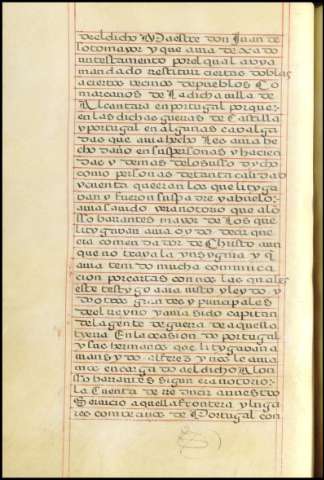 del dicho Maestre don Juan de
sotomayor y que auia dexado
untestamento por el qual abya
mandado restituir ciertas doblas
aciertos vecinos de pueblos Co
marcanos de La dicha uilla de
Alcantara en portugal porque:
en las dichas gueras de Castilla
y portugal en algunas caualga
das que auia hecho Les auia he
cho daño en sus personas y hacien
das y demas de lo susso dicho
como personas de tanta calidad
y cuenta que eran los que lityga
van y fueron su padre y abuelo:
auia sauido vera notorio que alo
sso barantes mayor de Los que
litygavan auia oydo decir que
era comendador de Christo aun
que no traya la ynsygnia y q
auia tenido mucha comunica
cion por cartas con el las quales
este testygo auia uisto y leydo y
otros grandes y principales
del reyno y auia sido capitan
de la gente de guerra de aquella
tyerra En la ocasion de portugal
y sus hermanos que litygauan a
mans y don alfreo y nos le auia
mos encargado del dicho Alon
sso barantes sigun era notorio:
la Cuenta de reducir a nuestro
Seruicio aquella frontera y luga
res comarcanos de Portugal con